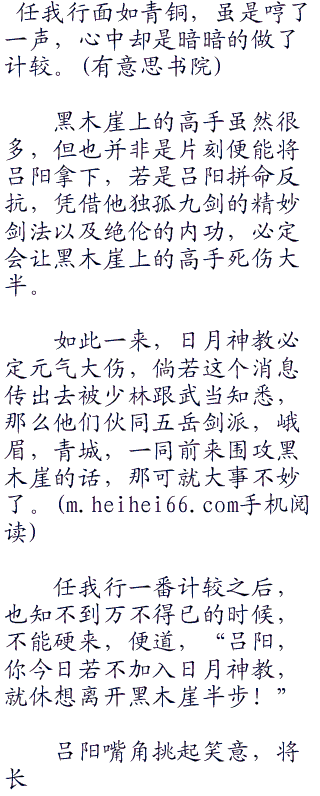 任我行面如青铜，虽是哼了
一声，心中却是暗暗的做了
计较。(有意思书院)
黑木崖上的高手虽然很
多，但也并非是片刻便能将
吕阳拿下，若是吕阳拼命反
抗，凭借他独孤九剑的精妙
剑法以及绝伦的内功，必定
会让黑木崖上的高手死伤大
半。
如此一来，日月神教必
定元气大伤，倘若这个消息
传出去被少林跟武当知悉，
那么他们伙同五岳剑派，峨
眉，青城，一同前来围攻黑
木崖的话，那可就大事不妙
了。(m.heihei66.com手机阅
读)
任我行一番计较之后，
也知不到万不得已的时候，
不能硬来，便道，“吕阳，
你今日若不加入日月神教，
就休想离开黑木崖半步！”
吕阳嘴角挑起笑意，将
长